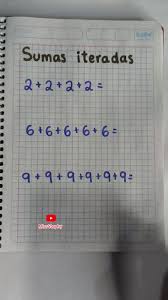 Sumas iteradas
2+2+2+2=
6+6+6+6+6=
9+9+9+9+9+9=